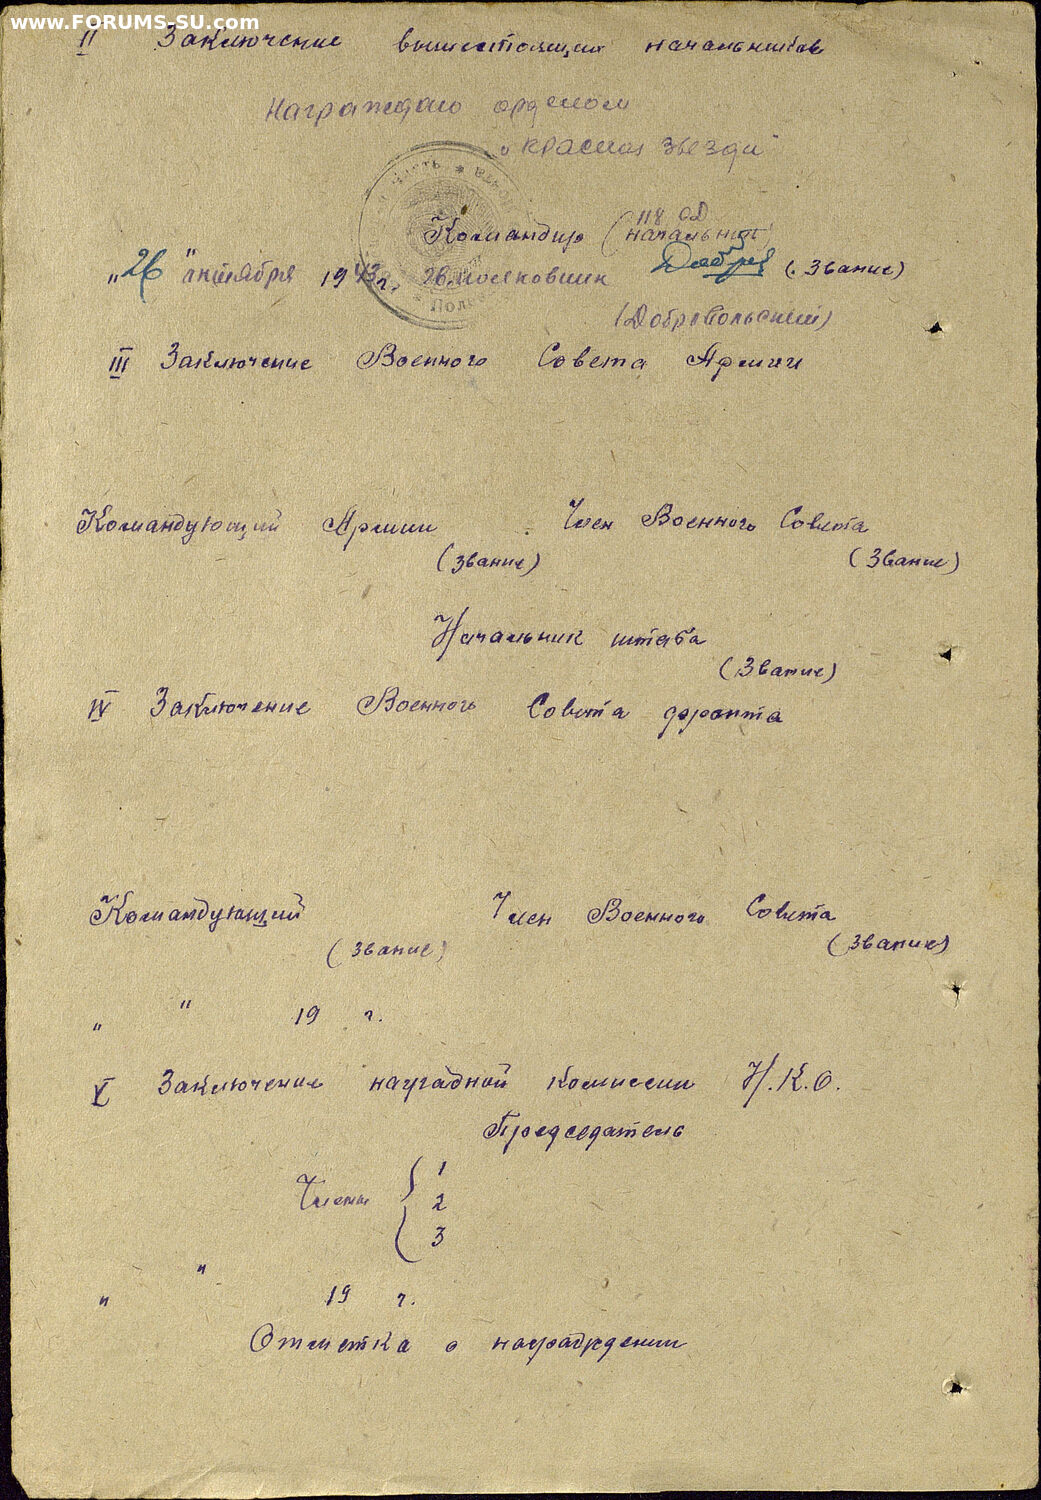 www.FORUMS-SU.com
II Заключение вышестоящих начальников
Награждаю орденом
„Красная Звезда"
118 СД
Командир (начальник)
„26" октября 1943г. Гв. полковник (Звание)
(Добровольский)
III Заключение Военного Совета Армии
Командующий Армии Член Военного Совета
(Звание) (Звание)
Начальник штаба
(Звание)
IV Заключение Военного Совета фронта
Командующий Член Военного Совета
(Звание) (Звание)
„ " 19 г.
V Заключение наградной комиссии Н.К.О.
Председатель
Члены { 1
2
3
„ " 19 г.
Отметка о награждении